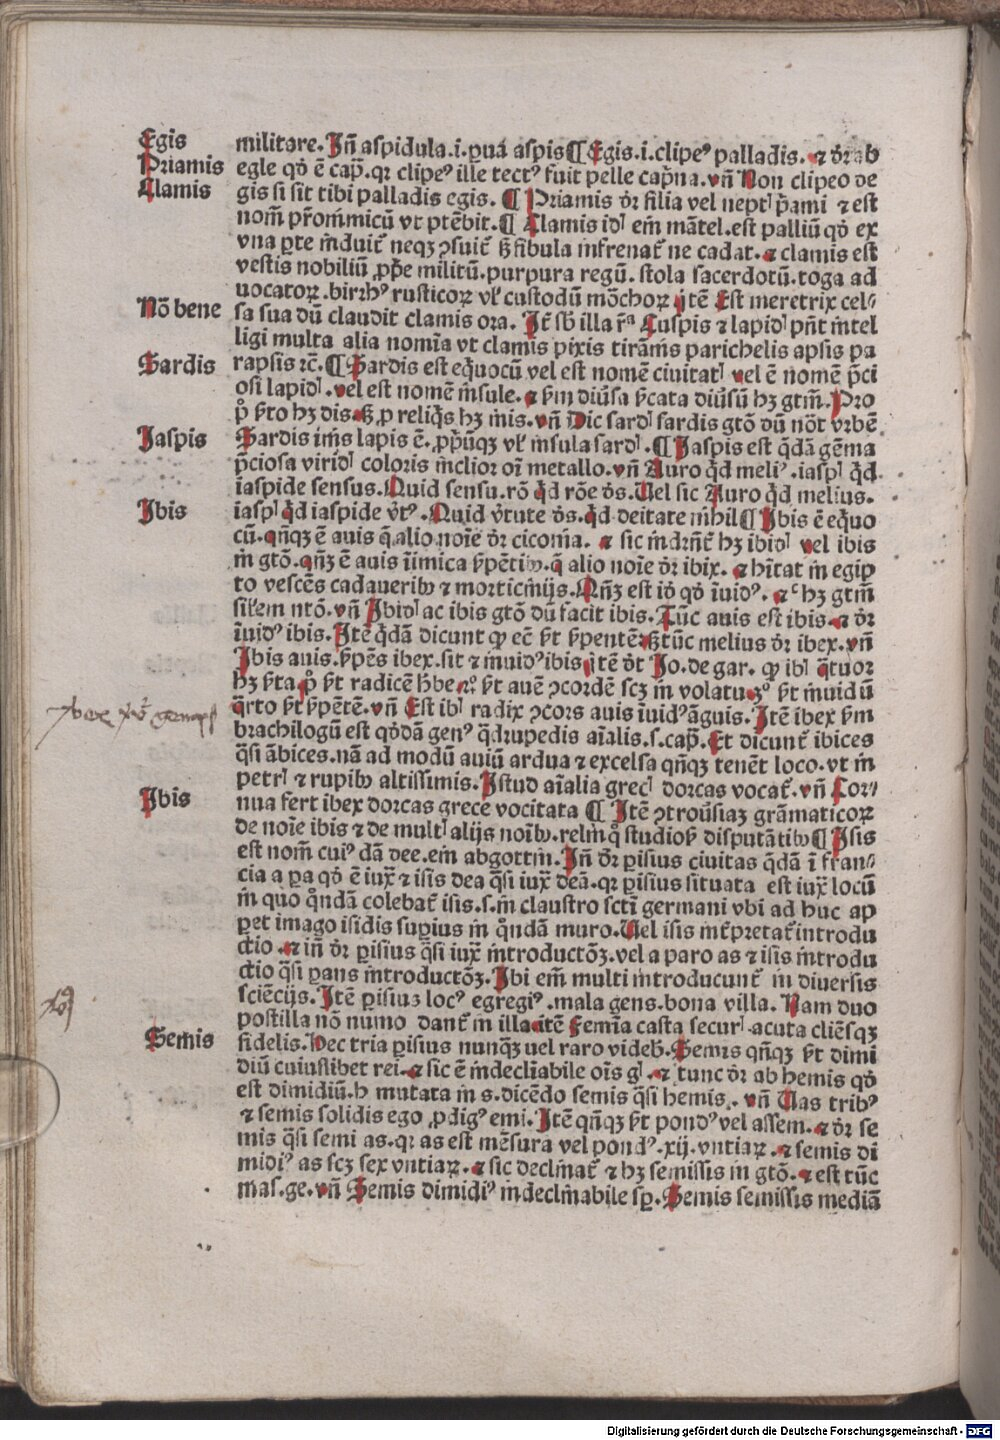 Egis
Priamis
Clamis
militare. Inn̄ aspidula .i. ꝑua aspis ¶ Egis .i. clipeꝰ palladis. ⁊ d̄r ab
egle qd̓ ē cap̄. qꝛ clipeꝰ ille tectꝰ fuit pelle cap̄na. vn̄ Non clipeo de
gis si sit tibi palladis egis. ¶ Priamis d̄r filia vel nept p̄ami ⁊ est
nom̄ pr̄om̄micū vt ptēbit. ¶ Clamis id em̄ mātel. est palliū qd̓ ex
vna ꝑte induit᷑ neqꝫ ꝯsuit᷑ sꝫ fibula infrenat᷑ ne cadat. ⁊ clamis est
vestis nobiliū ꝓpe militū. purpura regū. stola sacerdotū. toga ad
uocatoꝝ. birrhꝰ rusticoꝝ vl̓ custodū mōchoꝝ itē Est meretrix cel⸗
Nō bene
sa sua dū claudit clamis ora. It᷑ sb̓ illa r̄a Cuspis ⁊ lapid pn̄t intel
ligi multa alia nomīa vt clamis pixis tirāmis parichelis apsis pa
Sardis
rapsis ⁊c̄. ¶ Sardis est eq̄uocū vel est nomē ciuitat vel ē nomē p̄ci
osi lapid. vel est nomē insule. ⁊ ẜm diūsa ẜcata diūsū hꝫ gtm̄. Pro
p̊ ẜto hꝫ dis. sꝫ ꝓ reliq̄s hꝫ inis. vn̄ Dic sard sardis gtō dū nōt vrbē
Jaspis
Sardis im̄s lapis ē. ꝓp̄ūqꝫ vl̓ insula sard. ¶ Jaspis est q̄dā gēma
p̄ciosa virid coloris inclior oī metallo. vn̄ Auro q̄d meliꝰ .iasp q̄d
iaspide sensus. Quid sensu. rō q̄d rōe ds̄. Uel sic Auro q̄d melius.
Ibis
iasp q̄d iaspide v̓tꝰ. Quid v̓tute ds̄. q̄d deitate inhil ¶ Ibis ē eq̄uo
cū. qn̄qꝫ ē auis q̄ alio noīe d̄r ciconia. ⁊ sic indrn̄t᷑ hꝫ ibid vel ibis
in gtō. qn̄ꝫ ē auis īimica ẜpētibꝫ. q̄ alio noīe d̄r ibix. ⁊ hītat in egip
to vescēs cadaueribꝫ ⁊ morticinijs. Qn̄ꝫ est id̓ qd̓ īuidꝰ. ⁊ᶜ hꝫ gtm̄
sil̓em ntō. vn̄ Ibid ac ibis gtō dū facit ibis. Tūc auis est ibis. ⁊ d̄r
īuidꝰ ibis. Itē q̄dā dicunt ꝙ eē ẜt ẜpentē. sꝫ tūc melius d̄r ibex. vn̄
Ibis auis. ẜpēs ibex. sit ⁊ inuidꝰ ibis itē d̄t Jo. de gar. ꝙ ib q̄tuor
hꝫ ẜta. p̊ ẜt radicē hb̄e. 2º ẜt auē ꝯcordē scꝫ in volatu. 3º ẜt inuidū
q̄rto ẜt ẜpētē. vn̄ Est ib radix ꝯcors auis īuidꝰ āguis. Itē ibex ẜm
brachilogū est qd̓dā genꝰ q̄drupedis aīalis .s. cap̄. Et dicunt᷑ ibices
q̄si ābices. nā ad modū auiū ardua ⁊ excelsa qn̄qꝫ tenēt loco. vt in
petr ⁊ rupibꝫ altissimis. Istud aīalia grec dorcas vocat᷑. vn̄ Cor⸗
Ibis
nua fert ibex dorcas grece vocitata ¶ Itē ꝯtroūsiaꝫ grāmaticoꝝ
de noīe ibis ⁊ de mult alijs noībꝫ. relinq̊ studiosꝭ disputātibꝫ ¶ Isis
est nom̄ cuiꝰ dā dee. ein abgottin. In̄ d̄r ꝑisius ciuitas q̄dā ī fran⸗
cia a ꝑa qd̓ ē iux̄ ⁊ isis dea q̄si iux̄ deā. qꝛ ꝑisius situata est iux̄ locū
in quo q̊ndā colebat᷑ isis .s. in claustro sct̄i germani vbi ad huc ap
ꝑet imago isidis suꝑius in q̊ndā muro. Uel isis int̓pretat᷑ introdu
ctio. ⁊ in̄ d̄r ꝑisius q̄si iux̄ introductōꝫ. vel a paro as ⁊ isis introdu
ctio q̄si ꝑans introductōꝫ. Ibi em̄ multi introducunt᷑ in diuersis
sciēcijs. Itē ꝑisius locꝰ egregiꝰ. mala gens. bona villa. Nam duo
postilla nō numo dant᷑ in illa. itē Femīa casta secur acuta cliēsqꝫ
Semis
fidelis. Hec tria ꝑisius nunq̄ꝫ uel raro videb̄. Semis qn̄qꝫ ẜt dimi
diū cuiuslibet rei. ⁊ sic ē indeclīabile oīs g. ⁊ tunc d̄r ab hemis qd̓
est dimidiū. h mutata in s. dicēdo semis q̄si hemis. vn̄ Uas tribꝰ
⁊ semis solidis ego ꝓdigꝰ emi. Itē qn̄qꝫ ẜt pondꝰ vel assem. ⁊ d̄r se
mis q̄si semi as. qꝛ as est mēsura vel pondꝰ .xij. vntiaꝝ. ⁊ semis di
midiꝰ as scꝫ sex vntiaꝝ. ⁊ sic declinat᷑ ⁊ hꝫ semissis in gtō. ⁊ est tūc
mas. ge. vn̄ Semis dimidiꝰ indeclinabile sꝑ. Semis semissis mediā
Digitalisierung gefördert durch die Deutsche Forschungsgemeinschaft - DFG